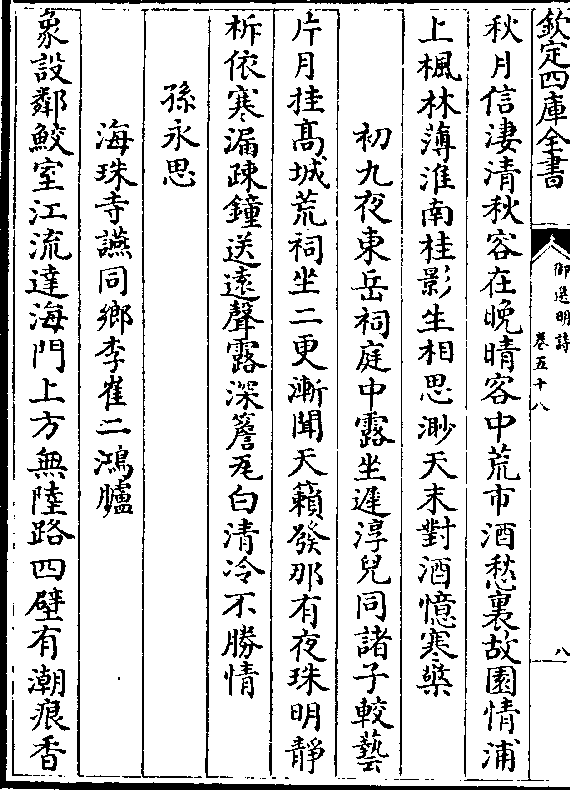 欽定四庫全書
御選明詩
卷五十八
八
秋月信淒清秋容在晚晴客中荒市酒愁裏故園情浦
上楓林薄淮南桂影生相思渺天末對酒憶寒檠
初九夜東岳祠庭中露坐遲淳兒同諸子較藝
片月挂髙城荒祠坐二更漸聞天籟發那有夜珠明靜
柝依寒漏疎鐘送遠聲露深簷瓦白清冷不勝情
孫永思
海珠寺讌同鄉李崔二鴻臚
象設鄰鮫室江流達海門上方無陸路四壁有潮痕香